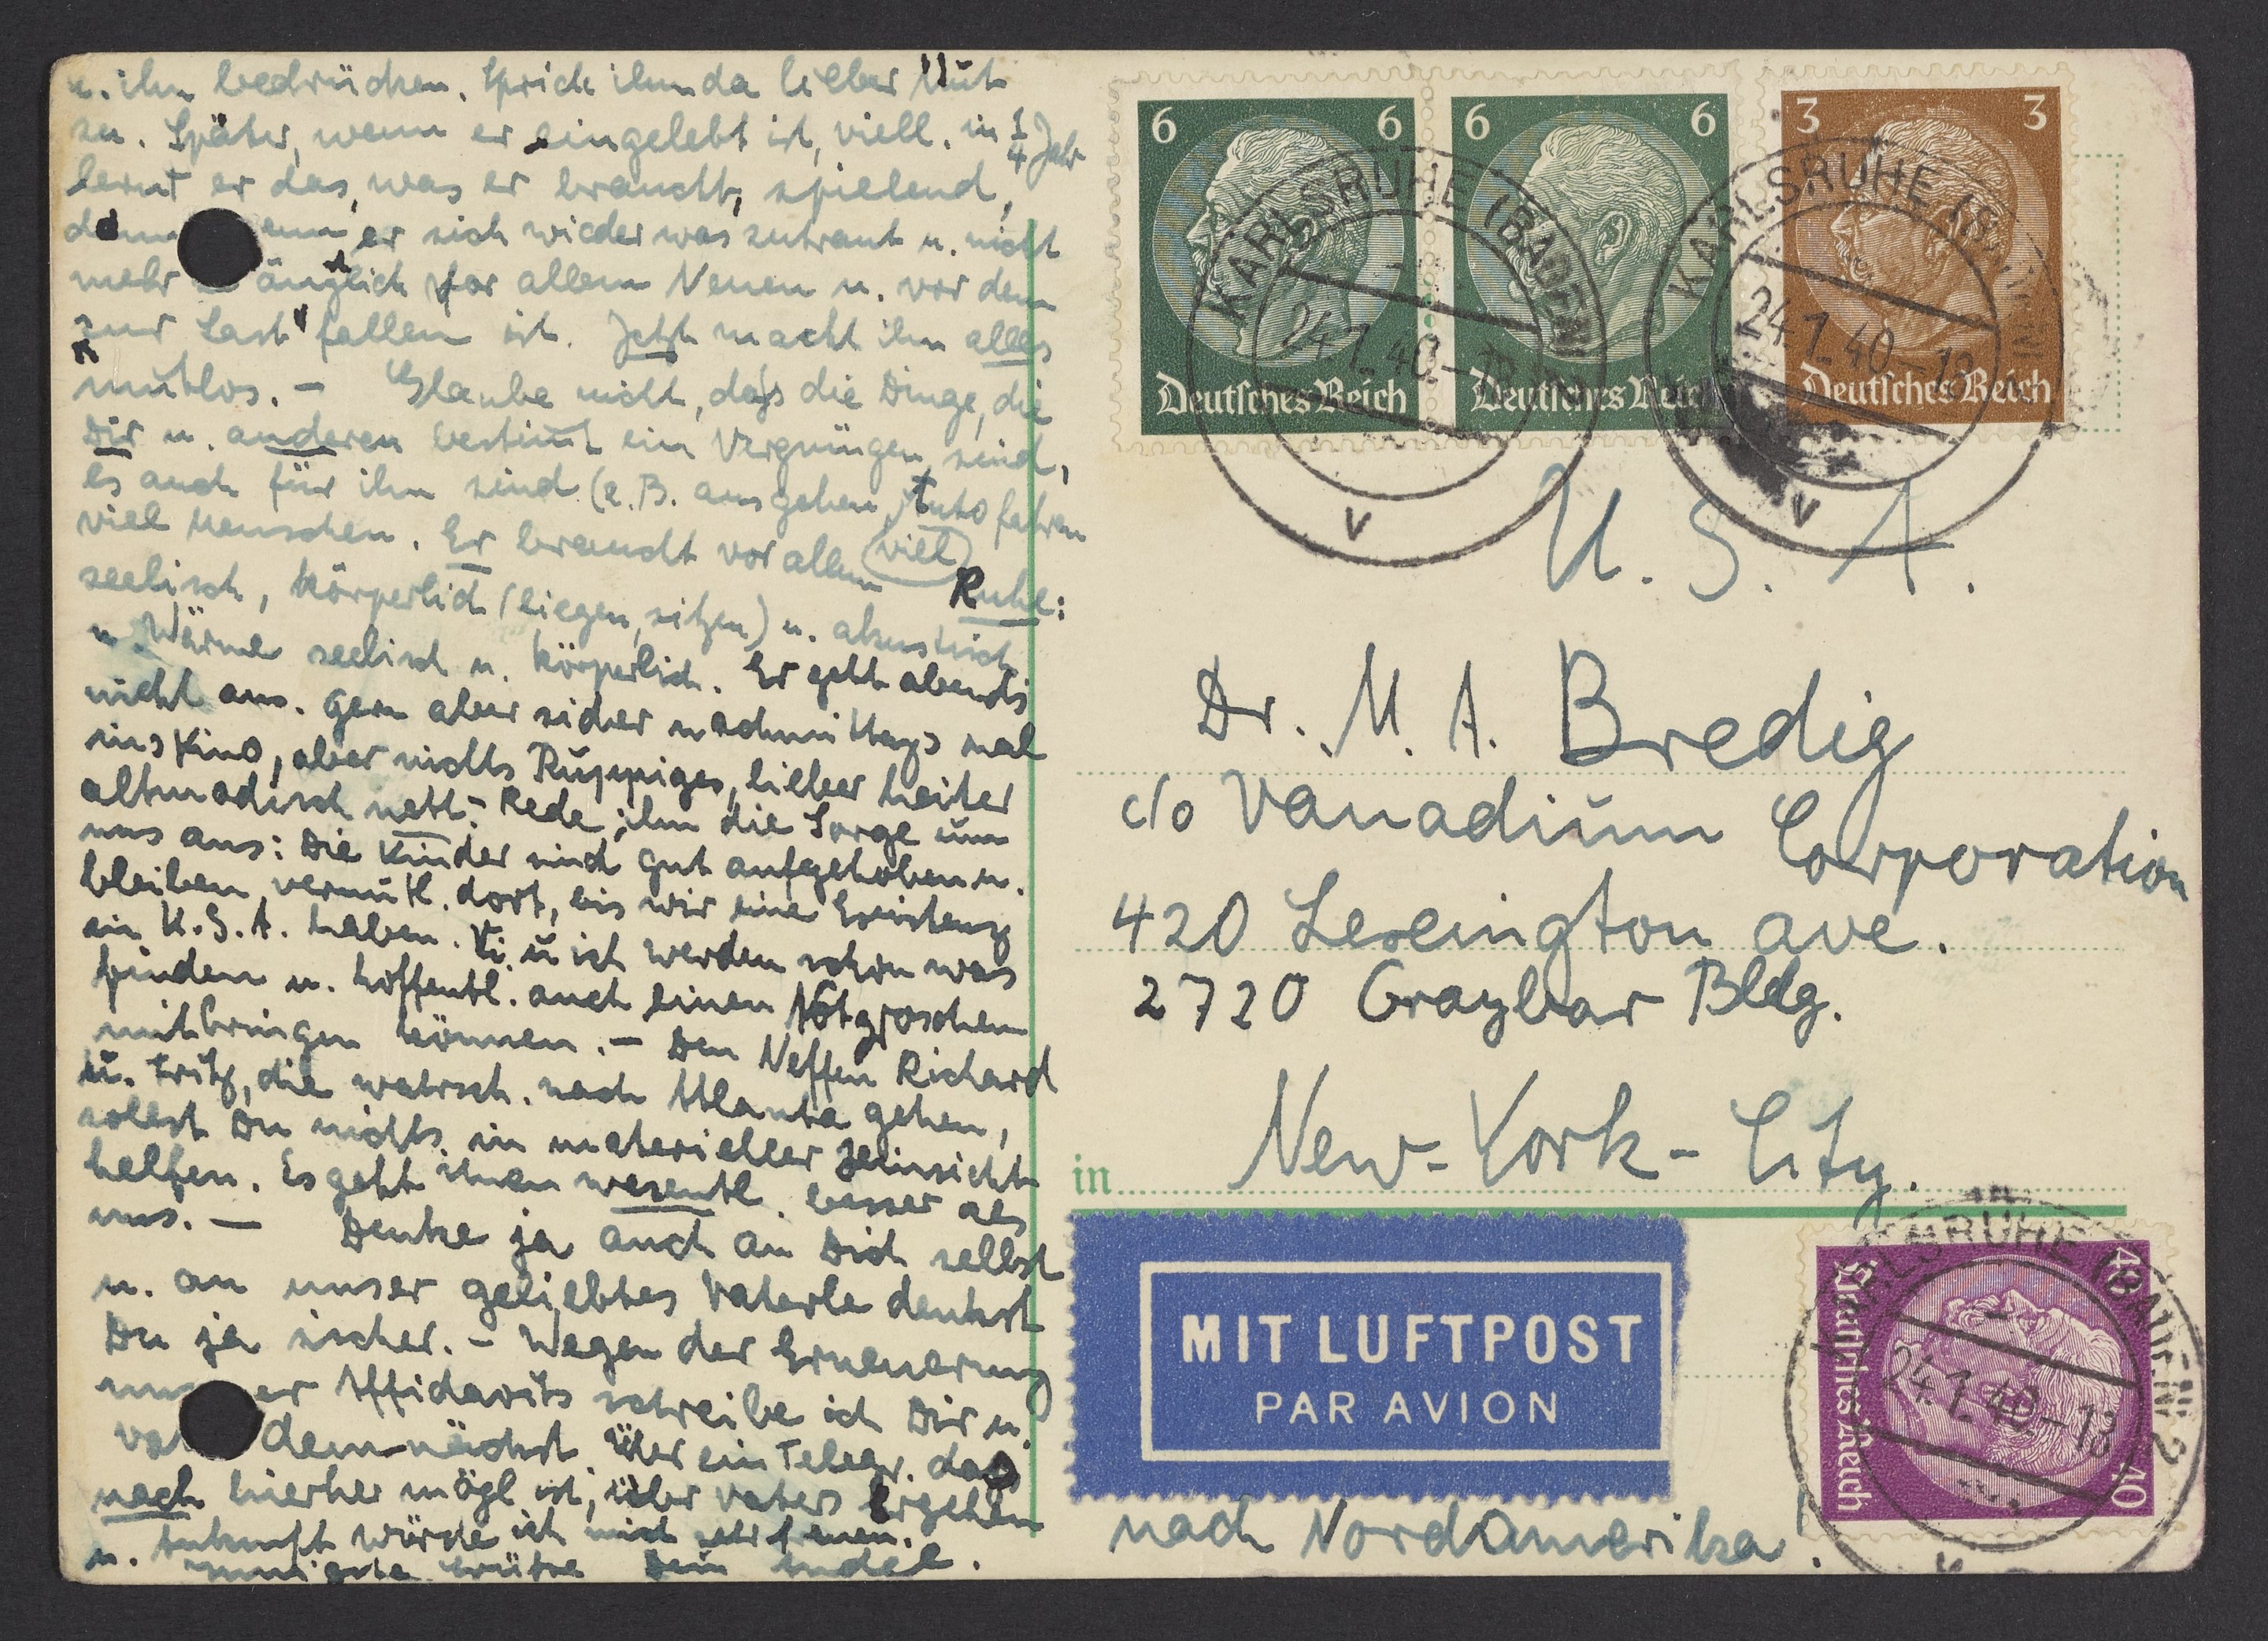 u. ihn bedrücken. Sprich ihm da lieber Mut
zu. Später, wenn er eingelebt ist, viell. in 1/4 Jahr
lernt er das, was er braucht, spielend,
er sich wieder was zutraut u. nicht
mehr ängstlich vor allem Neuen u. vor dem
"zur Last fallen" ist. Jetzt macht ihn alles
mutlos. – Glaube nicht, dass die Dinge, die
Dir u. anderen bestimmt ein Vergnügen sind,
es auch für ihn sind (z.B. ausgehen, Auto fahren
viel Menschen. Er braucht vor allem viel
Ruhe:
seelisch, körperlich (liegen, sitzen) u. akustisch
u. Wärme seelisch u. körperlich. Er geht abends
nicht aus. gern aber sicher nachmittags mal
ins Kino, aber nichts Ruppiges, lieber heiter
altmodisch nett. – Rede ihm die Sorge um
uns aus: Die Kinder sind gut aufgehoben u.
bleiben vermutl. dort, bis wir eine Existenz
in U.S.A. haben. Vi. u ich werden schon was
finden u. hoffentl. auch einen Notgroschen
mitbringen können. – Den Neffen Richard
u. Fritz, die wahrsch. nach Atlanta gehen,
sollst Du nichts in materieller Hinsicht
helfen. Es geht ihnen wesentl. besser als
uns. – Denke ja auch an Dich selbst
u. an unser geliebtes Vaterle denkst
Du ja sicher. – Wegen der Erneuerung
unser Affidavits schreibe ich Dir u.
demnächst. Über ein Telegr. das
nach hierher mögl. ist, über Vaters Ergehen
u. Ankunft würde ich mich sehr freuen.
Grüsse Dein
6 6
6 6
3 3
Deutsches Reich
Deutsches Reich
Deutsches Reich
KARLSRUHE (BADEN)
24.1.40–13
V
KARLSRUHE (BADEN)
24.1.40–13
V
U. S. A.
Dr. M. A. Bredig
c/o Vanadium Corporation
420 Lexington ave.
2720 Graybar Bldg.
in New-York-City.
MIT LUFTPOST
PAR AVION
nach Nordamerika!
40 40
Deutsches Reich
KARLSRUHE (BADEN) 2
24.1.40–13